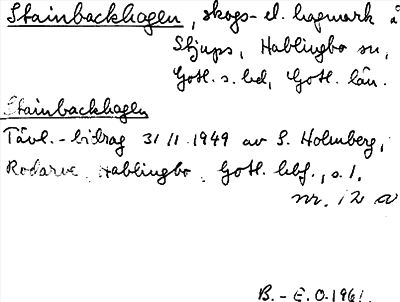 Stainbackhagen, skogs- el. hagmark å
Stjups, Hablingbo sn,
Gotl. s. hd, Gotl. län.
Stainbackhagen
Tävl.-bidrag 31/1 1949 av S. Holmberg,
Rodarve, Hablingbo, Gotl. hbf., s. 1.
nr. 12 a
B.-E. O. 1961.